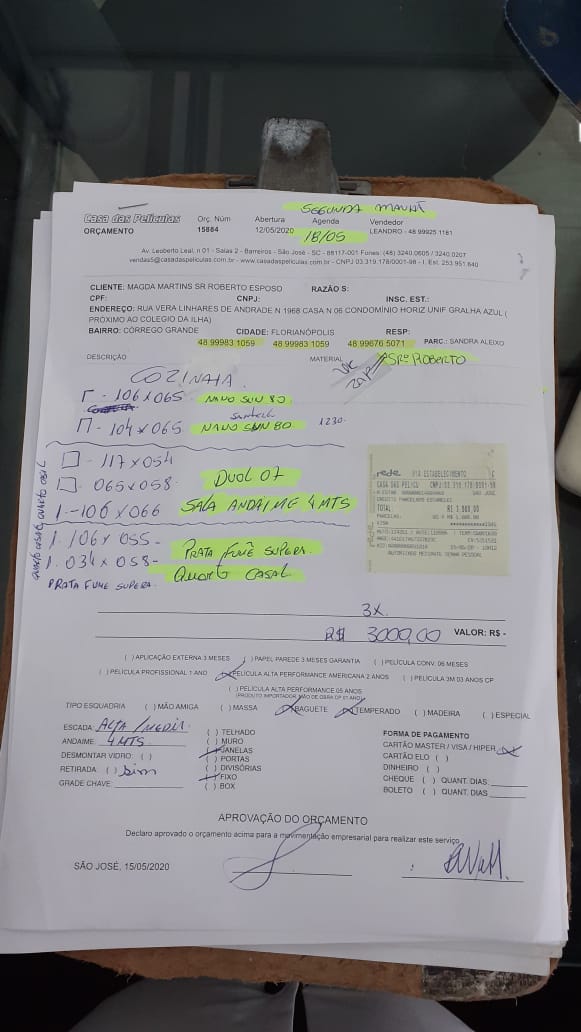 SEGUNDA MANHÃ
Casa das Películas Orç. Núm Abertura Agenda Vendedor
ORÇAMENTO 15884 12/05/2020 18/05 LEANDRO - 48 99925 1181
Av. Leoberto Leal, n 01 - Salas 2 - Barreiros - São José - SC - 88117-001 Fones: (48) 3240.0605 / 3240.0207
vendas5@casadaspeliculas.com.br - www.casadaspeliculas.com.br - CNPJ 03.319.178/0001-98 - I. Est. 253.951.640
CLIENTE: MAGDA MARTINS SR ROBERTO ESPOSO RAZÃO S:
CPF: CNPJ: INSC. EST.:
ENDEREÇO: RUA VERA LINHARES DE ANDRADE N 1968 CASA N 06 CONDOMÍNIO HORIZ UNIF GRALHA AZUL (
PRÓXIMO AO COLEGIO DA ILHA)
BAIRRO: CÓRREGO GRANDE CIDADE: FLORIANÓPOLIS RESP:
48 99983 1059 48 99983 1059 48 99676 5071 PARC.: SANDRA ALEIXO
DESCRIÇÃO MATERIAL SRº ROBERTO
COZINHA
106 x 065 NANO SUN 80
104 x 065 NANO SUN 80 1230
117 x 054
065 x 058 DUOL 07
1 - 106 x 066 SALA ANDAIME 4 MTS
1. 106 x 055 - PRATA FUMÊ SUPERA.
1. 034 x 058 - QUARTO CASAL
PRATA FUME SUPERA.
rede VIA ESTABELECIMENTO
CASA DAS PELICU
SAO JOSE
TOTAL
VISA
3x.
R$ 3000,00 VALOR: R$ -
( ) APLICAÇÃO EXTERNA 3 MESES ( ) PAPEL PAREDE 3 MESES GARANTIA ( ) PELÍCULA CONV. 06 MESES
( ) PELÍCULA PROFISSIONAL 1 ANO (X) PELÍCULA ALTA PERFORMANCE AMERICANA 2 ANOS ( ) PELÍCULA 3M 03 ANOS CP
( ) PELÍCULA ALTA PERFORMANCE 05 ANOS
(PRODUTO IMPORTADOR, MÃO DE OBRA CP 01 ANO)
TIPO ESQUADRIA ( ) MÃO AMIGA ( ) MASSA (X) BAGUETE (X) TEMPERADO ( ) MADEIRA ( ) ESPECIAL
ESCADA: ALTA / MEDIA ( ) TELHADO FORMA DE PAGAMENTO
ANDAIME: 4 MTS. ( ) MURO CARTÃO MASTER / VISA / HIPER (X)
DESMONTAR VIDRO: ( ) (X) JANELAS CARTÃO ELO ( )
( ) PORTAS DINHEIRO ( )
RETIRADA: ( ) Sim ( ) DIVISÓRIAS CHEQUE ( ) QUANT. DIAS:
GRADE CHAVE: (X) FIXO BOLETO ( ) QUANT. DIAS
( ) BOX
APROVAÇÃO DO ORÇAMENTO
Declaro aprovado o orçamento acima para a movimentação empresarial para realizar este serviço
SÃO JOSÉ, 15/05/2020